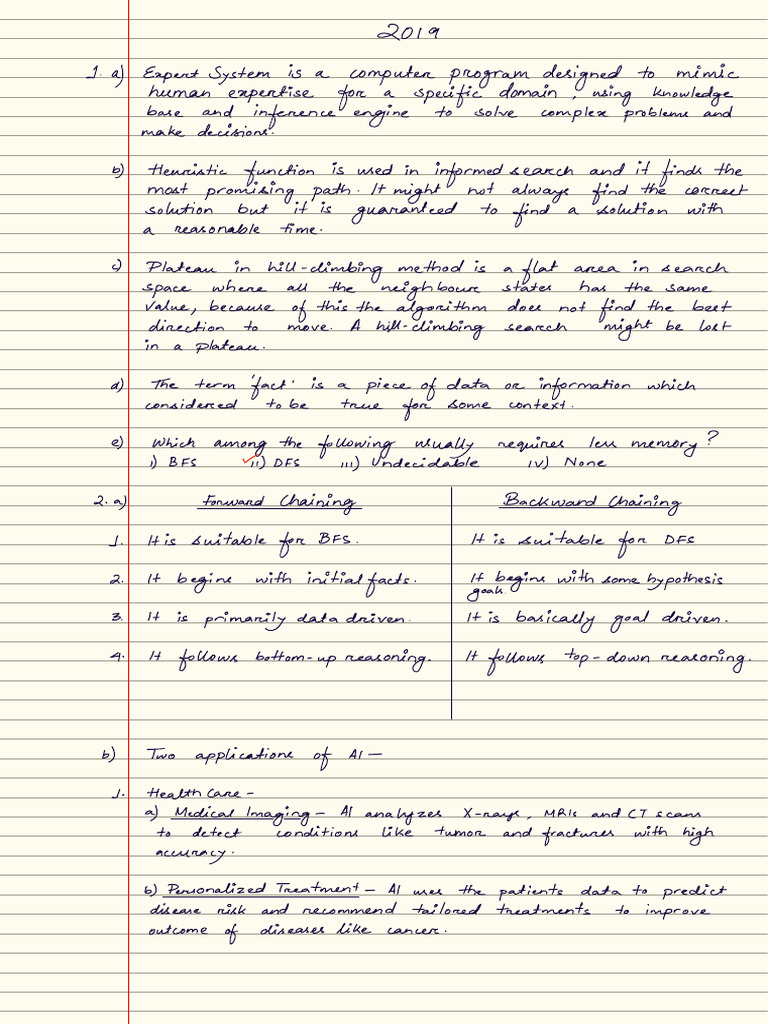 2019
1. a) Expert System is a computer program designed to mimic
human expertise for a specific domain, using knowledge
base and inference engine to solve complex problems and
make decisions.
b) Heuristic function is used in informed search and it finds the
most promising path. It might not always find the correct
solution but it is guaranteed to find a solution with
a reasonable time.
c) Plateau in hill-climbing method is a flat area in search
space where all the neighbour states has the same
value, because of this the algorithm does not find the best
direction to move. A hill-climbing search might be lost
in a Plateau.
d) The term 'fact' is a piece of data or information which
considered to be true for some context.
e) Which among the following usually requires less memory?
i) BFS ✓ii) DFS iii) Undecidable iv) None
2. a) Forward Chaining Backward Chaining
1. It is suitable for BFS. It is suitable for DFS
2. It begins with initial facts. It begins with some hypothesis
goals.
3. It is primarily data driven. It is basically goal driven.
4. It follows bottom-up reasoning. It follows top-down reasoning.
b) Two applications of AI —
1. Health Care -
a) Medical Imaging - AI analyzes X-rays, MRIs and CT scans
to detect conditions like tumor and fractures with high
accuracy.
b) Personalized Treatment - AI uses the patients data to predict
disease risk and recommend tailored treatments to improve
outcome of diseases like cancer.